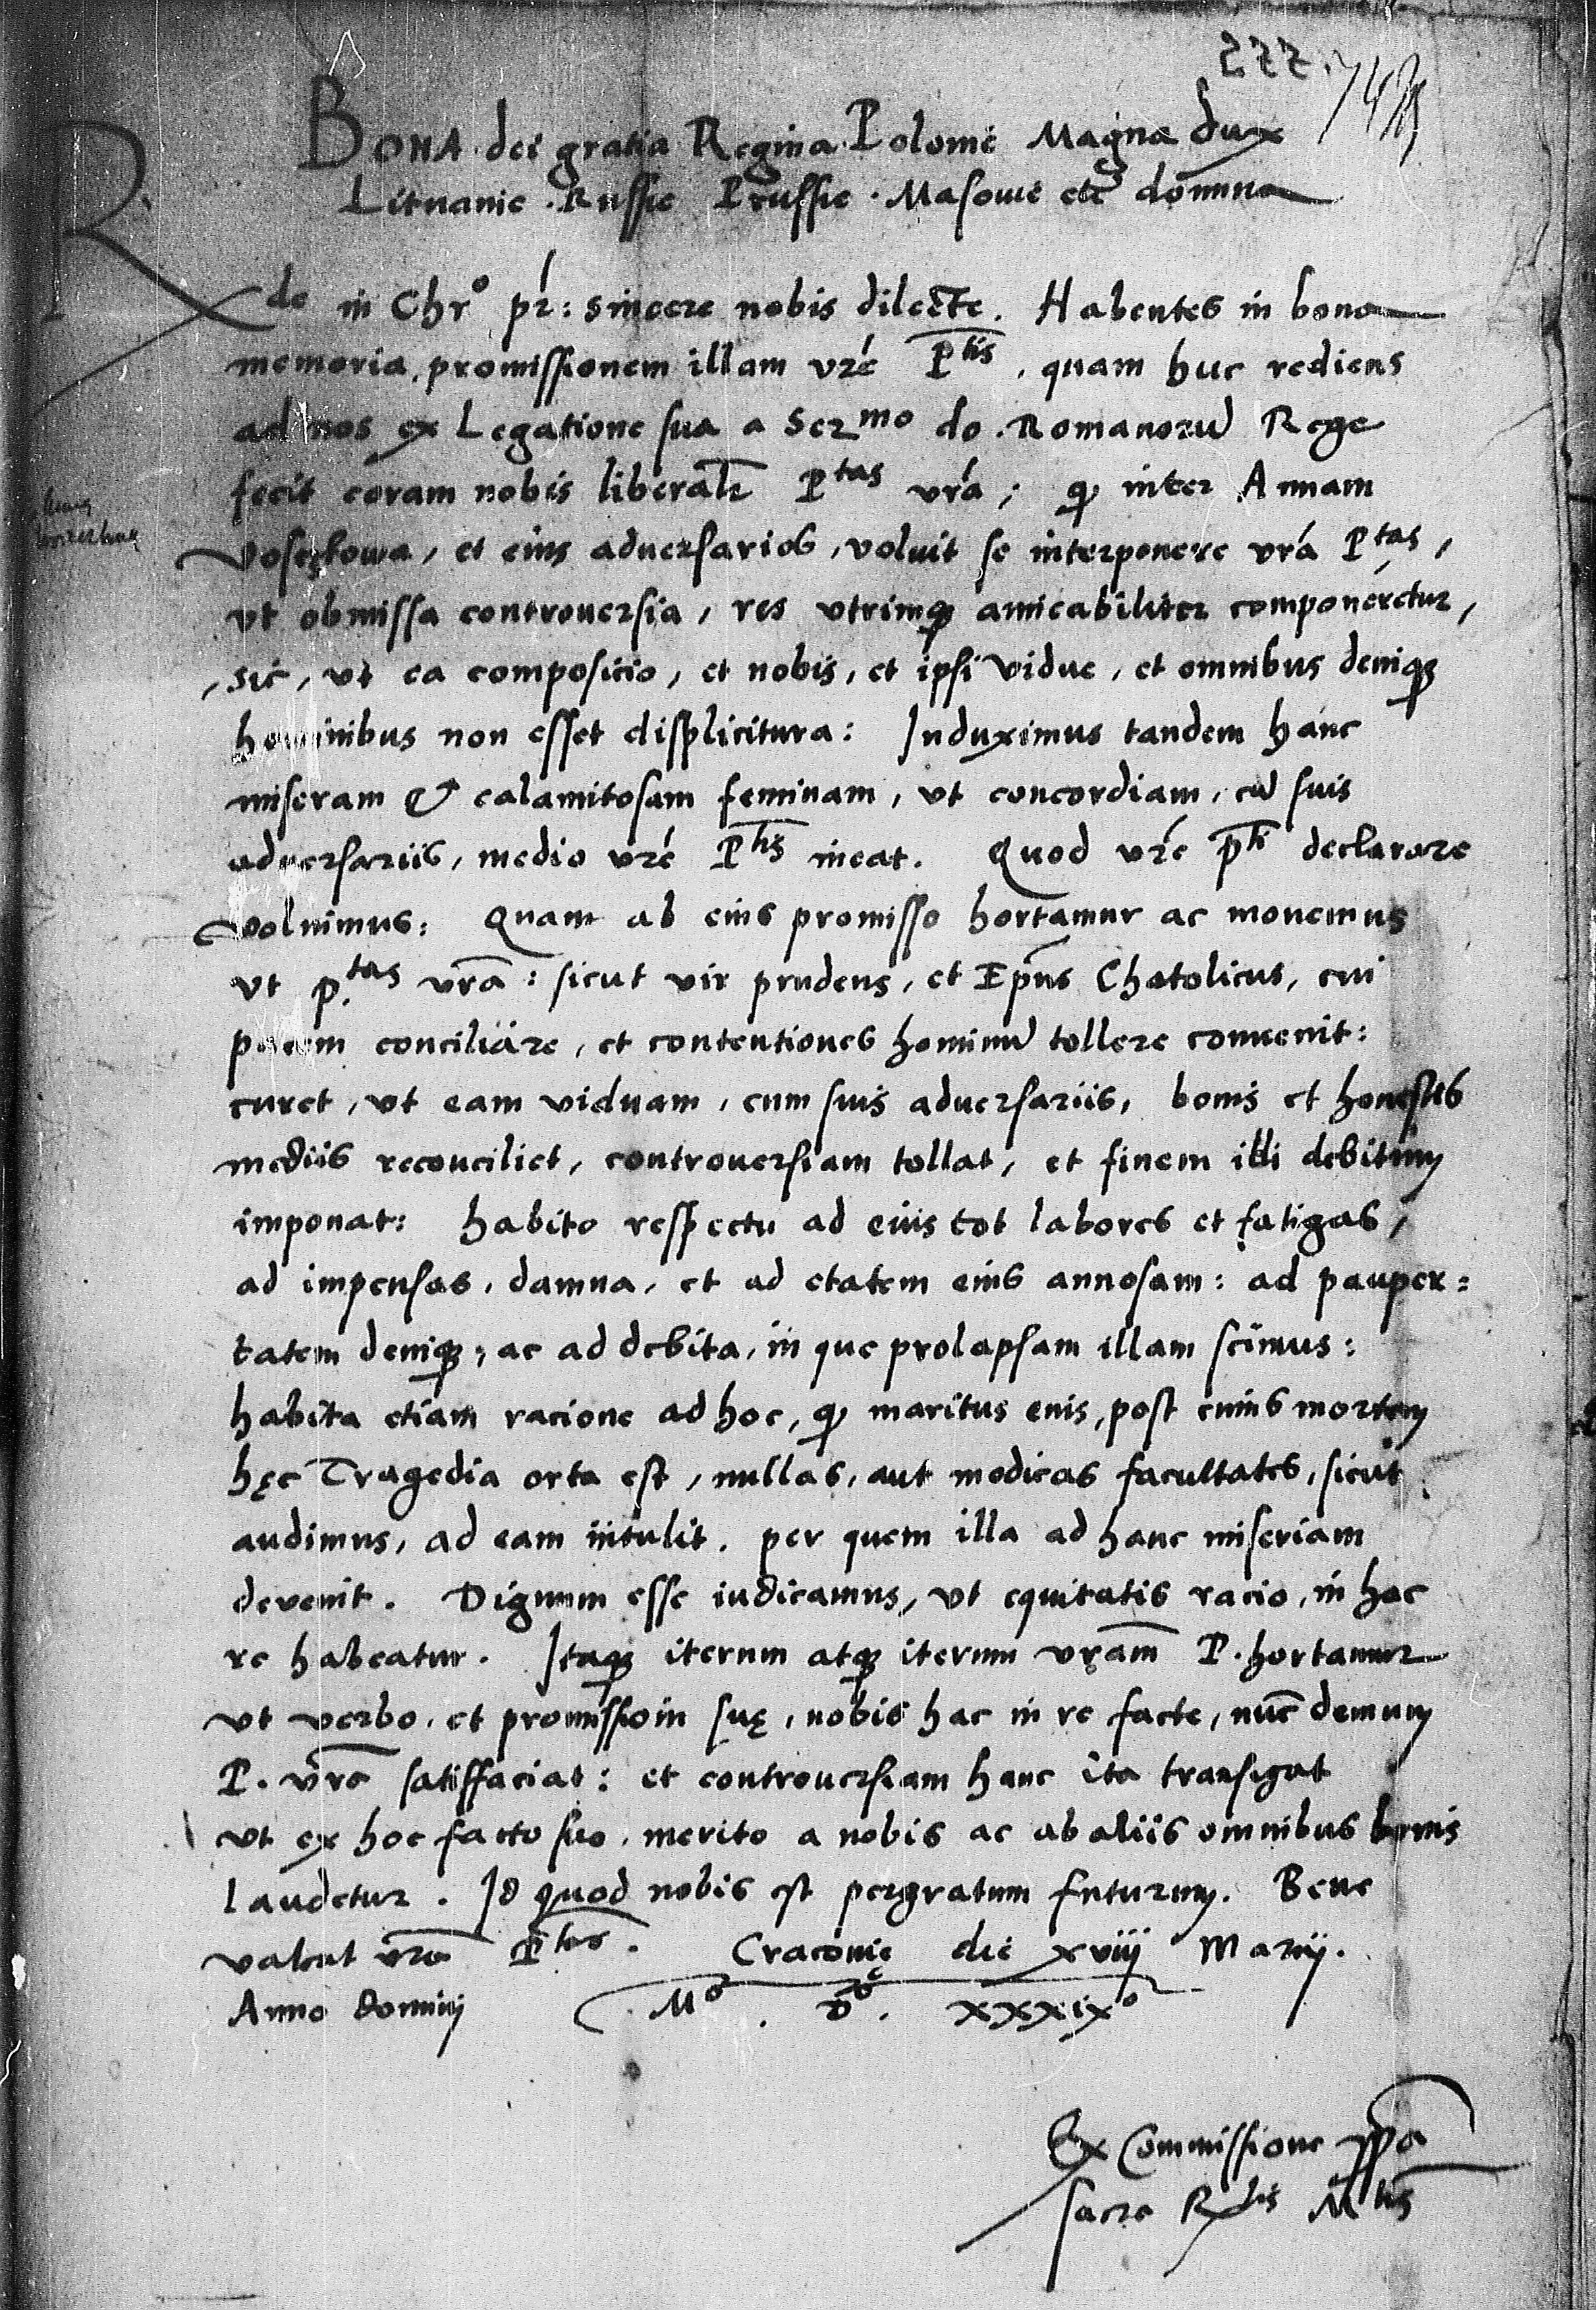 277.
BONA dei gratia Regina Polonie Magna dux
Lituanie . Russie Prussie . Masouie etc domina
Rde in Chro pr: sincere nobis dilecte. Habentes in bona
memoria, promissionem illam vre Ptis, quam huc rediens
ad nos ex Legatione sua a Sermo do. Romanorum Rege
fecit coram nobis liberalr Ptas vra; q inter Annam
Vosęłowa, et eius aduersarios, voluit se interponere vra Ptas,
vt obmissa controuersia, res vtrimq amicabiliter componeretur,
, sic, vt ea composicio, et nobis, et ipsi vidue, et omnibus deniq
hominibus non esset displicitura: Induximus tandem hanc
miseram & calamitosam feminam, vt concordiam, cu suis
aduersariis, medio vre Ptis ineat. Quod vre pti declarare
voluimus: Quam ab eius promisso hortamur ac monemus
vt p.tas vra: sicut vir prudens, et Epus Chatolicus, cui
pacem conciliare, et contentiones hominu tollere conuenit:
curet, vt eam viduam, cum suis aduersariis, bonis et honestis
mediis reconciliet, controuersiam tollat, et finem illi debitum
imponat: habito respectu ad eius tot labores et fatigas,
ad impensas, damna, et ad etatem eius annosam: ad pauper=
tatem deniq; ac ad debita, in que prolapsam illam scimus:
habita etiam racione ad hoc, q maritus eius, post cuius mortem
hęc Tragedia orta est, nullas, aut modicas facultates, sicut
audimus, ad eam intulit. per quem illa ad hanc miseriam
devenit. Dignum esse iudicamus, vt equitatis racio, in hac
re habeatur. Itaq iterum atq iterum vram P. hortamur
vt verbo, et promissioni suę, nobis hac in re facte, nuc demum
P. vra satisfaciat: et controuersiam hanc ita transigat
vt ex hoc facto suo, merito a nobis ac ab aliis omnibus bonis
laudetur. Id quod nobis est pergratum futurum. Bene
valeat vra Ptas. Cracouię die xviij Marcij.
Anno domini Mo. Do. xxxixo
Ex Commissione ppa
sacre Rlis Mtis